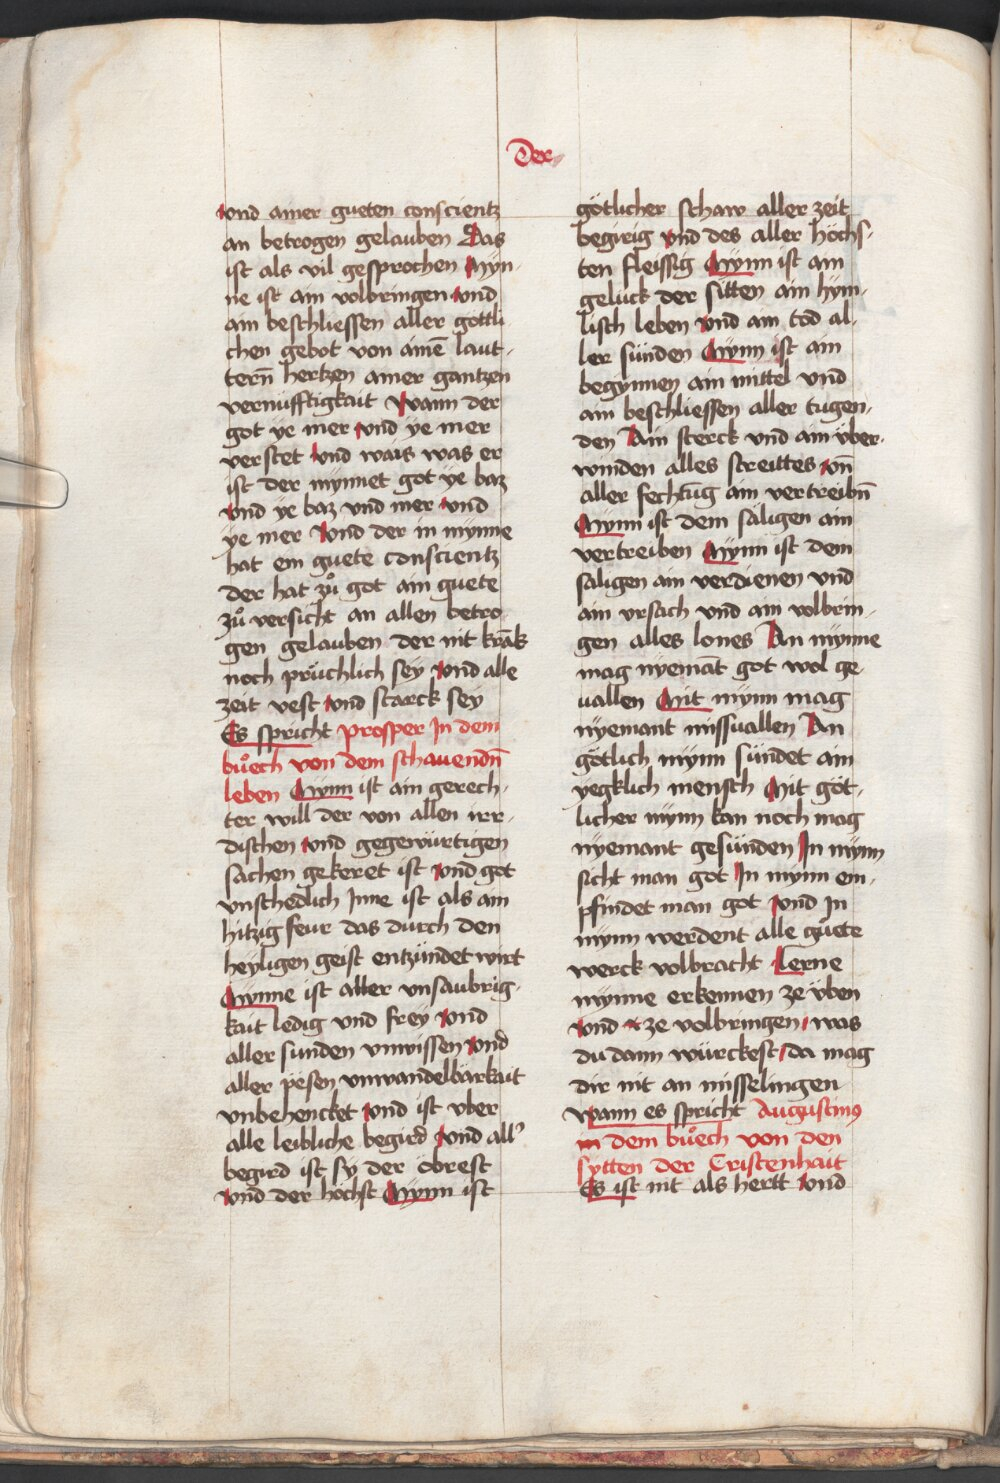 Der
vnd ainer gueten conscientz
an betrogen gelauben Das
ist als vil gesprochen Myn-
ne ist ain volbringen vnd
ain beschliessen aller gottli
chen gebot von aine͂ laut-
tern̄ hertzen ainer gantzen
vernufftigkait Wann der
got ye mer vnd ye mer
verstet vnd wais was er
ist der mynnet got ye baz
vnd ye baz vnd mer vnd
ye mer Vnd der in mynne
hat ein guete conscientz
der hat zů got ain guete
zů versicht an allen betro
gen gelauben der nit krāk
noch prüchlich sey vnd alle
zeit vest vnd starck sey
Es spricht prosper In dem
bůech von dem schauendn̄
leben Mynn ist ain gerech-
ter will der von allen irr-
dischen vnd gegewürtigen
sachen gekeret ist vnd got
vnschedlich Inne ist als ain
hitzig feur das durch den
heyligen geist entzündet wirt
Mynne ist aller vnsaubrig-
kait ledig vnd frey vnd
aller sunden vnwissen vnd
aller pësen vnwandelbärkait
vnbehencket vnd ist vber
alle leibliche begird vnd all'
begird ist sy der öbrest
vnd der höchst Mynn ist
götlicher schaw aller zeit
begirig vnd des aller höchs-
ten fleissig Mynn ist ain
gelück der sitten ain hym-
lisch leben vnd ain tod al-
ler sünden Mynn ist ain
begynnen ain mittel vnd
ain beschliessen aller tugen-
den Ain sterck vnd ain vber-
winden alles streittes vn̄
aller fechtūg ain vertreibn̄
Mynn ist dem säligen ain
vertreiben Mynn ist dem
säligen ain verdienen vnd
ain vrsach vnd ain volbrin-
gen alles lones An mynne
mag nyemāt got wol ge
uallen Mit mynn mag
nyemant missuallen An
götlich mynn sündet ain
yegklich mensch Mit göt-
licher mynn kan noch mag
nyemant gesünden In mynn
sicht man got In mynn em-
pfindet man got vnd In
mynn werdent alle gůete
werck volbracht Lerne
mynne erkennen ze vben
vnd ze volbringen was
du dann würckest da mag
dir nit an misselingen
wann es spricht Augustinꝰ
in dem bůech von den
sytten der Cristenhait
Es ist nit als hertt vnd